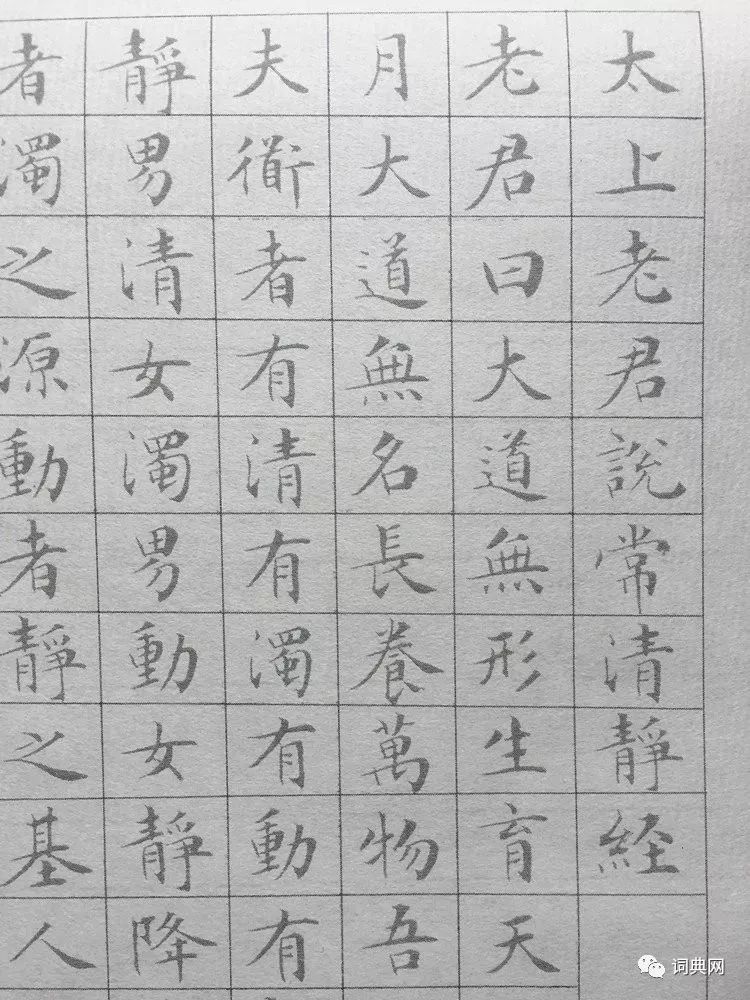 太上老君說常清靜経
老君曰大道無形生育天
月大道無名長養萬物吾
夫衜者有清有濁有動有
靜男清女濁男動女靜降
者濁之源動者靜之基人
词典网